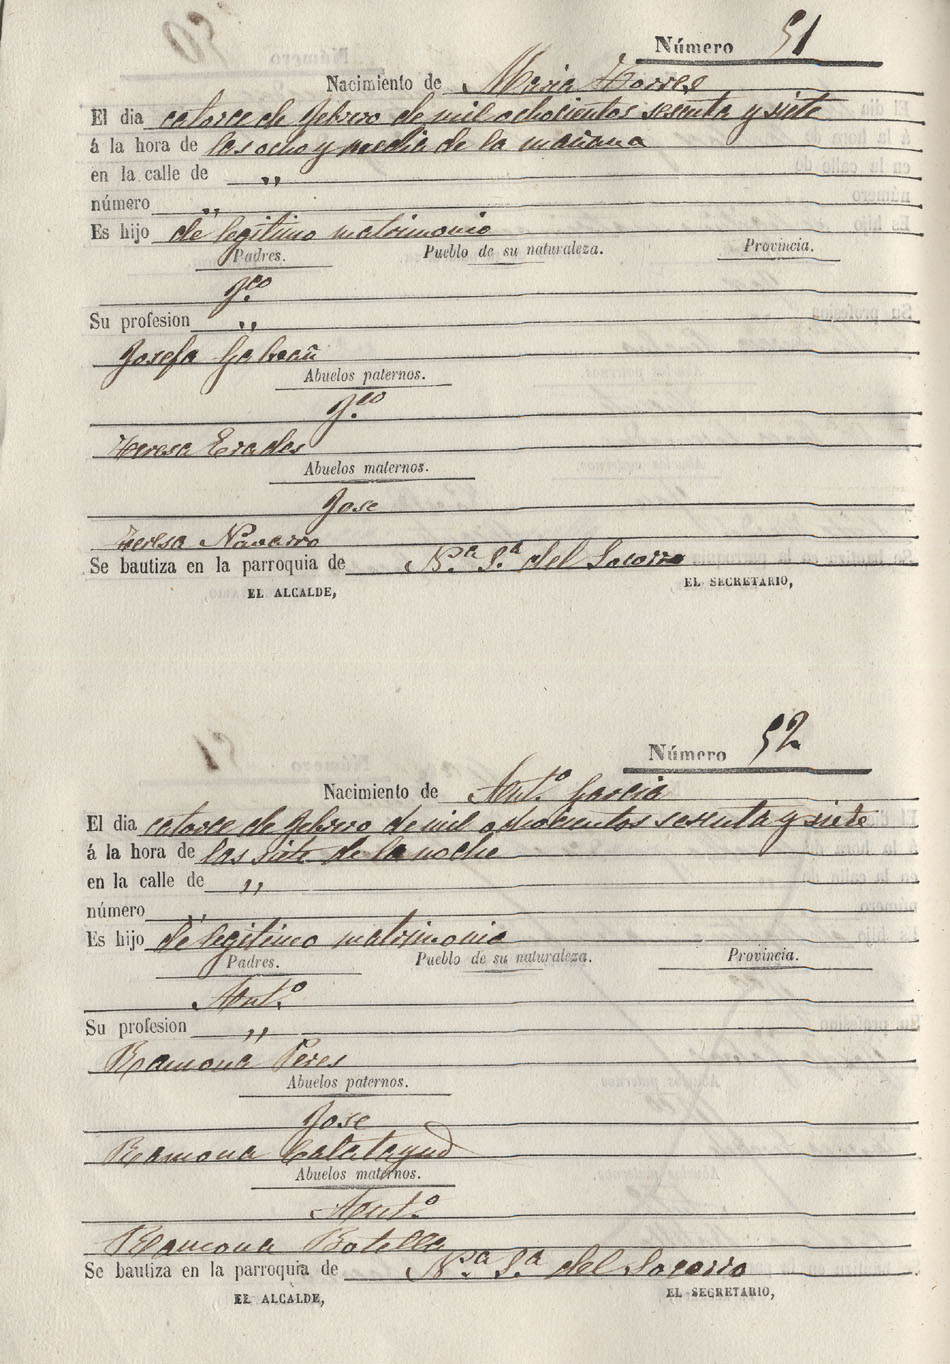 Número 51
Nacimiento de Maria Torres
El dia catorce de febrero de mil ochocientos sesenta y siete
á la hora de las ocho y media de la mañana
en la calle de „
número „
Es hijo de legitimo matrimonio
Padres. Pueblo de su naturaleza. Provincia.
Fco
Su profesion „
Josefa Galvañ
Abuelos paternos.
Fco
Teresa Erades
Abuelos maternos.
Jose
Teresa Navarro
Se bautiza en la parroquia de N.a S.a del Socorro
EL ALCALDE, EL SECRETARIO,
Número 52
Nacimiento de Ant.o Garcia
El dia catorce de febrero de mil ochocientos sesenta y siete
á la hora de las siete de la noche
en la calle de „
número „
Es hijo de legitimo matrimonio
Padres. Pueblo de su naturaleza. Provincia.
Ant.o
Su profesion „
Ramona Peres
Abuelos paternos.
Jose
Ramona Calatayud
Abuelos maternos.
Ant.o
Ramona Botella
Se bautiza en la parroquia de N.a S.a del Socorro
EL ALCALDE, EL SECRETARIO,